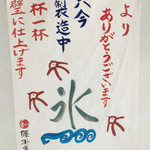 より
ありがとうございます
只今
製造中
杯一杯
壁に仕上げます
氷